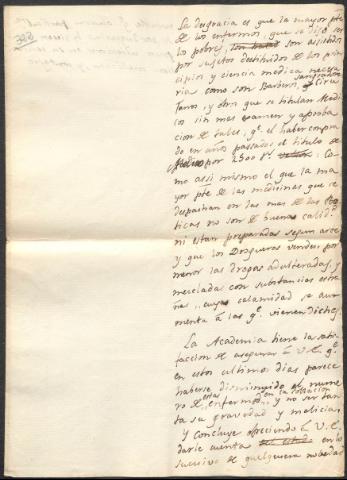 La desgracia es que la mayor pte
de los enfermos, que se dijo ser
los pobres, son asistidos
por sujetos destituidos de los prin
cipios y ciencia medica necesa
ria como son Barberos, sangradores, Ciru
janos, y otros que se titulan Medi
cos sin mas examen y aproba
cion de tales, qe. el haber compra
do en años passados el titulo de
Medico por 1500 rs. Co
mo assi mismo el que la ma
yor pte de las medicinas que se
despachan en las mas de las Bo
ticas no son de buena calidd.
ni estan preparadas segun arte
y que los Drogueros venden por
menor las drogas adulteradas, y
mezcladas con substancias estra
ñas, cuya calamidad se au
menta à las qe. vienen dichas.
La Academia tiene la satis
faccion de asegurar à V.E. qe.
en estos ultimos dias parece
haberse disminuido el nume
ro de estas enfermeds. en la poblacion y no ser tan
ta su gravedad y malicia.
Y concluye ofreciendo à V.E.
darle cuenta en lo
sucesivo de qualquiera novedad